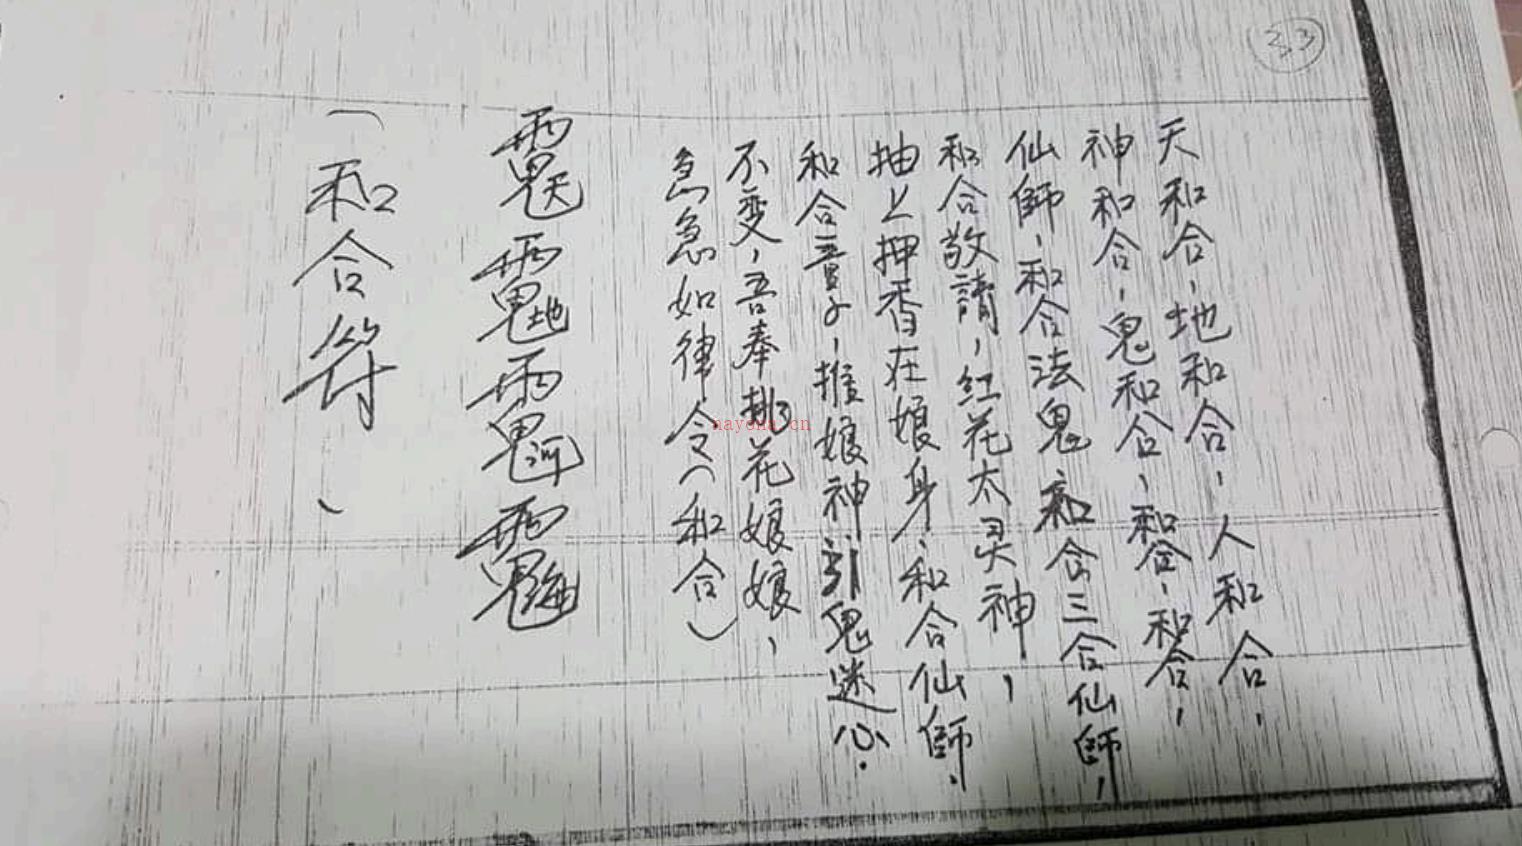 33
天和合、地和合、人和合、
神和合、鬼和合、和合、和合、
仙師、和合法鬼和合三合仙師,
和合敬請,紅花太灵神,
抽上押香在娘身、和合仙師、
和合童子,推娘神引鬼迷心.
不变,吾奉挑花娘娘、
急急如律令(和合)
(和合符)
nayona.cn